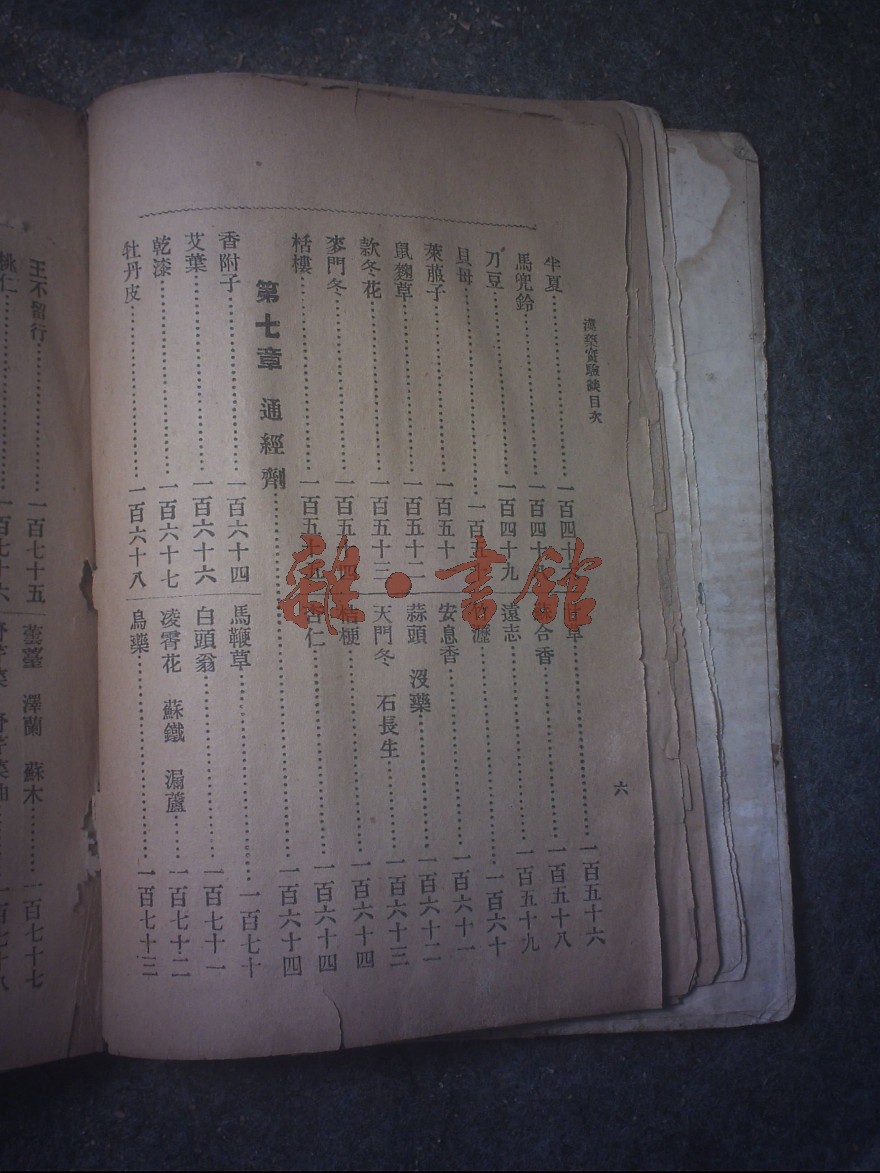 漢藥實驗談目次
六
半夏
馬兜鈴
刀豆……一百四十九
貝母
萊菔子……一百五十
鼠麴草……一百五十二
款冬花……一百五十三
麥門冬
栝樓
……一百五十六
……一百五十八
遠志……一百五十九
……一百六十
安息香……一百六十一
蒜頭 沒藥……一百六十二
天門冬 石長生……一百六十三
桔梗……一百六十四
杏仁……一百六十四
第七章 通經劑……一百六十四
香附子……一百六十四
艾葉……一百六十六
乾漆……一百六十七
牡丹皮……一百六十八
馬鞭草……一百七十
白頭翁……一百七十一
凌霄花 蘇鐵 漏蘆……一百七十二
烏藥……一百七十三
王不留行……一百七十五
桃仁……一百七十六
澤蘭 蘇木……一百七十七
一百七十八
雜·書館